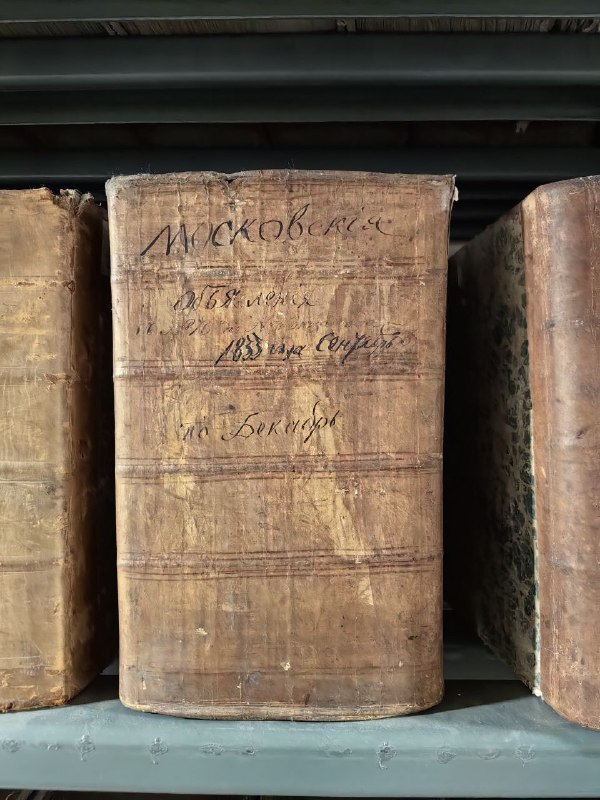 Московскія
Объявленія
1833 года Сентябрь
по Декабрь